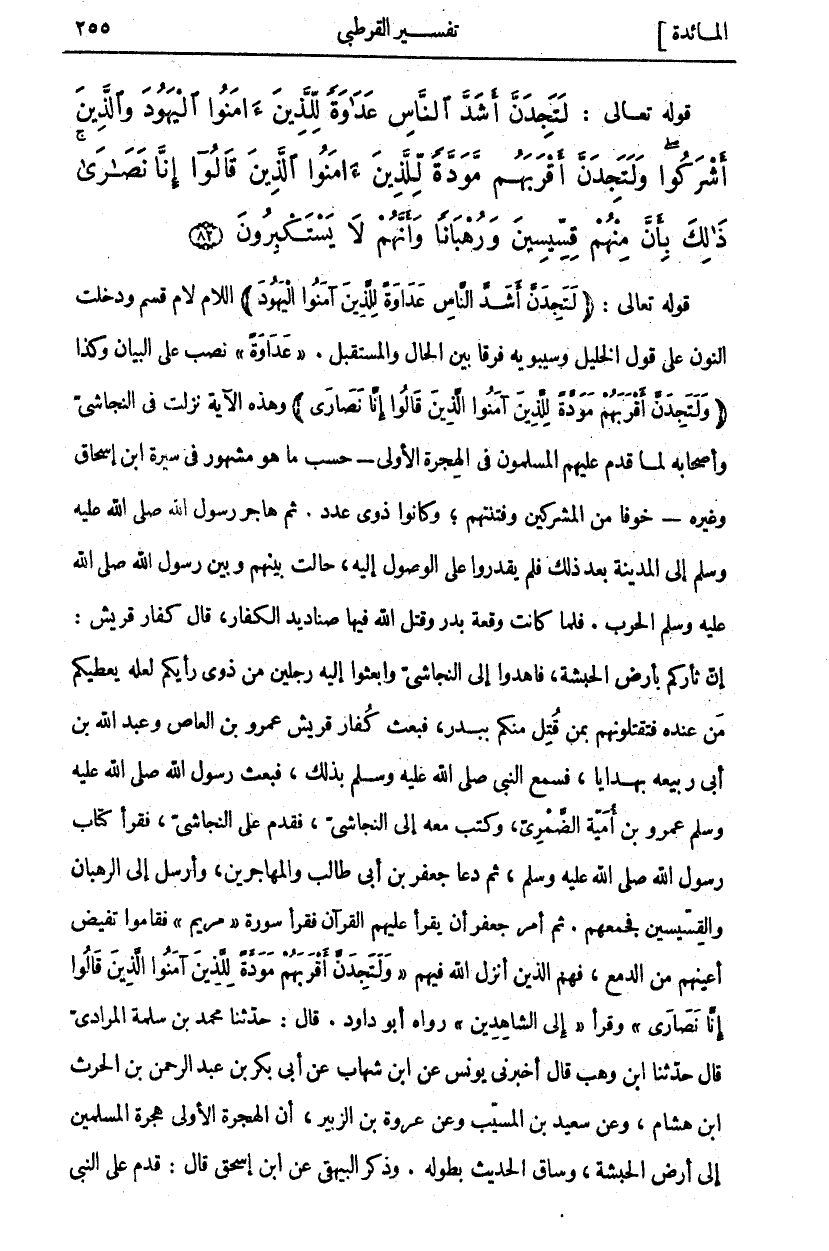 المائدة ] تفسير القرطبى ٢٥٥
قوله تعالى : لَتَجِدَنَّ أَشَدَّ ٱلنَّاسِ عَدَاوَةً لِّلَّذِينَ ءَامَنُوا الْيَهُودَ وَٱلَّذِينَ
أَشْرَكُوا ۖ وَلَتَجِدَنَّ أَقْرَبَهُم مَّوَدَّةً لِّلَّذِينَ ءَامَنُوا الَّذِينَ قَالُوٓا إِنَّا نَصَـٰرَىٰ ۚ
ذَٰلِكَ بِأَنَّ مِنْهُمْ قِسِّيسِينَ وَرُهْبَانًا وَأَنَّهُمْ لَا يَسْتَكْبِرُونَ (٨٢)
قوله تعالى : ﴿ لَتَجِدَنَّ أَشَدَّ النَّاسِ عَدَاوَةً لِلَّذِينَ آمَنُوا الْيَهُودَ ﴾ اللام لام قسم ودخلت
النون على قول الخليل وسيبويه فرقا بين الحال والمستقبل . « عَدَاوَةً » نصب على البيان وكذا
﴿ وَلَتَجِدَنَّ أَقْرَبَهُمْ مَوَدَّةً لِلَّذِينَ آمَنُوا الَّذِينَ قَالُوا إِنَّا نَصَارَى ﴾ وهذه الآية نزلت فى النجاشىّ
وأصحابه لمـا قدم عليهم المسلمون فى الهِجرة الأولى – حسب ما هو مشهور فى سيرة ابن إسحاق
وغيره – خوفا من المشركين وفتنتهم ؛ وكانوا ذوى عدد . ثم هاجر رسول الله صلى الله عليه
وسلم إلى المدينة بعد ذلك فلم يقدروا على الوصول إليه، حالت بينهم وبين رسول الله صلى الله
عليه وسلم الحرب . فلما كانت وقعة بدر وقتل الله فيها صناديد الكفار، قال كفار قريش :
إنّ ثأركم بأرض الحبشة، فاهدوا إلى النجاشىّ وابعثوا إليه رجلين من ذوى رأيكم لعله يعطيكم
مَن عنده فتقتلونهم بمن قُتِل منكم ببـدر، فبعث كُفار قريش عمرو بن العاص وعبد الله بن
أبى ربيعه بهـدايا ، فسمع النبى صلى الله عليه وسـلم بذلك ، فبعث رسول الله صلى الله عليه
وسلم عمرو بن أُمَيّة الضَّمْرِىّ، وكتب معه إلى النجاشىّ ، فقدم على النجاشىّ ، فقرأ كتاب
رسول الله صلى الله عليه وسلم ، ثم دعا جعفر بن أبى طالب والمهاجرين، وأرسل إلى الرهبان
والقِسّيسين فجمعهم . ثم أمر جعفر أن يقرأ عليهم القرآن فقرأ سورة « مريم » فقاموا تفيض
أعينهم من الدمع ، فهم الذين أنزل الله فيهم « وَلَتَجِدَنَّ أَقْرَبَهُمْ مَوَدَّةً لِلَّذِينَ آمَنُوا الَّذِينَ قَالُوا
إِنَّا نَصَارَى » وقرأ « إلى الشاهِدِين » رواه أبو داود . قال : حدّثنا محمد بن سلمة المرادىّ
قال حدّثنا ابن وهب قال أخبرنى يونس عن ابن شهاب عن أبى بكر بن عبد الرحمن بن الحرث
ابن هشام ، وعن سعيد بن المسيّب وعن عروة بن الزبير ، أن الهجرة الأولى هجرة المسلمين
إلى أرض الحبشة ، وساق الحديث بطوله . وذكر البيهقى عن ابن إسحق قال : قدم على النبى